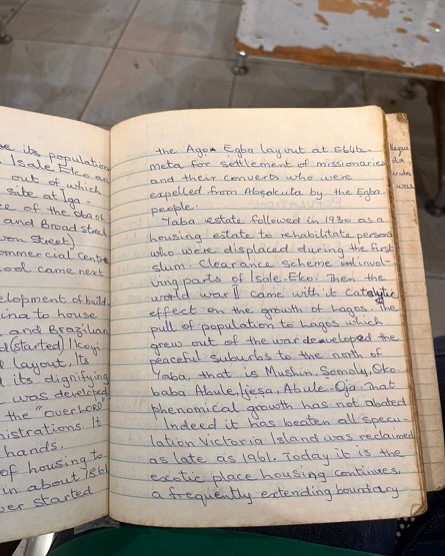 se its population
Isale Eko an
out of which
site at Iga-
ce of the oba ct
and Broad street
von Street)
ommercial Centre
ool came next
elopment of build-
ing to house
and Brazilian
d (started) Ikoyi
layout, Its
d its dignifying
was developed
the "overLORD"
nistrations. It
hands.
of housing to
in about 1861
ver started
the Ago Egba layout at Ebute-
meta for settlement of missionaries
and their converts who were
expelled from Abeokuta by the Egba
people.
Yaba estate followed in 1930 as a
housing estate to rehabilitate persons
who were displaced during the first
slum. Clearance scheme in invol-
ving parts of Isale. Eko. Then the
world war II came with it Catalytic
effect on the growth of Lagos. The
pull of population to Lagos which
grew out of the war developed the
peaceful suburbs to the north of
Yaba, that is Mushin, Somolu, Oko.
baba Abule, Ijesa, Abule-Oja. That
phenomical growth has not abated
Indeed it has beaten all specu
lation Victoria Island was reclaimed
as late as 1961. Today it is the
exotic place housing continues,
a frequently extending boundary
da
was